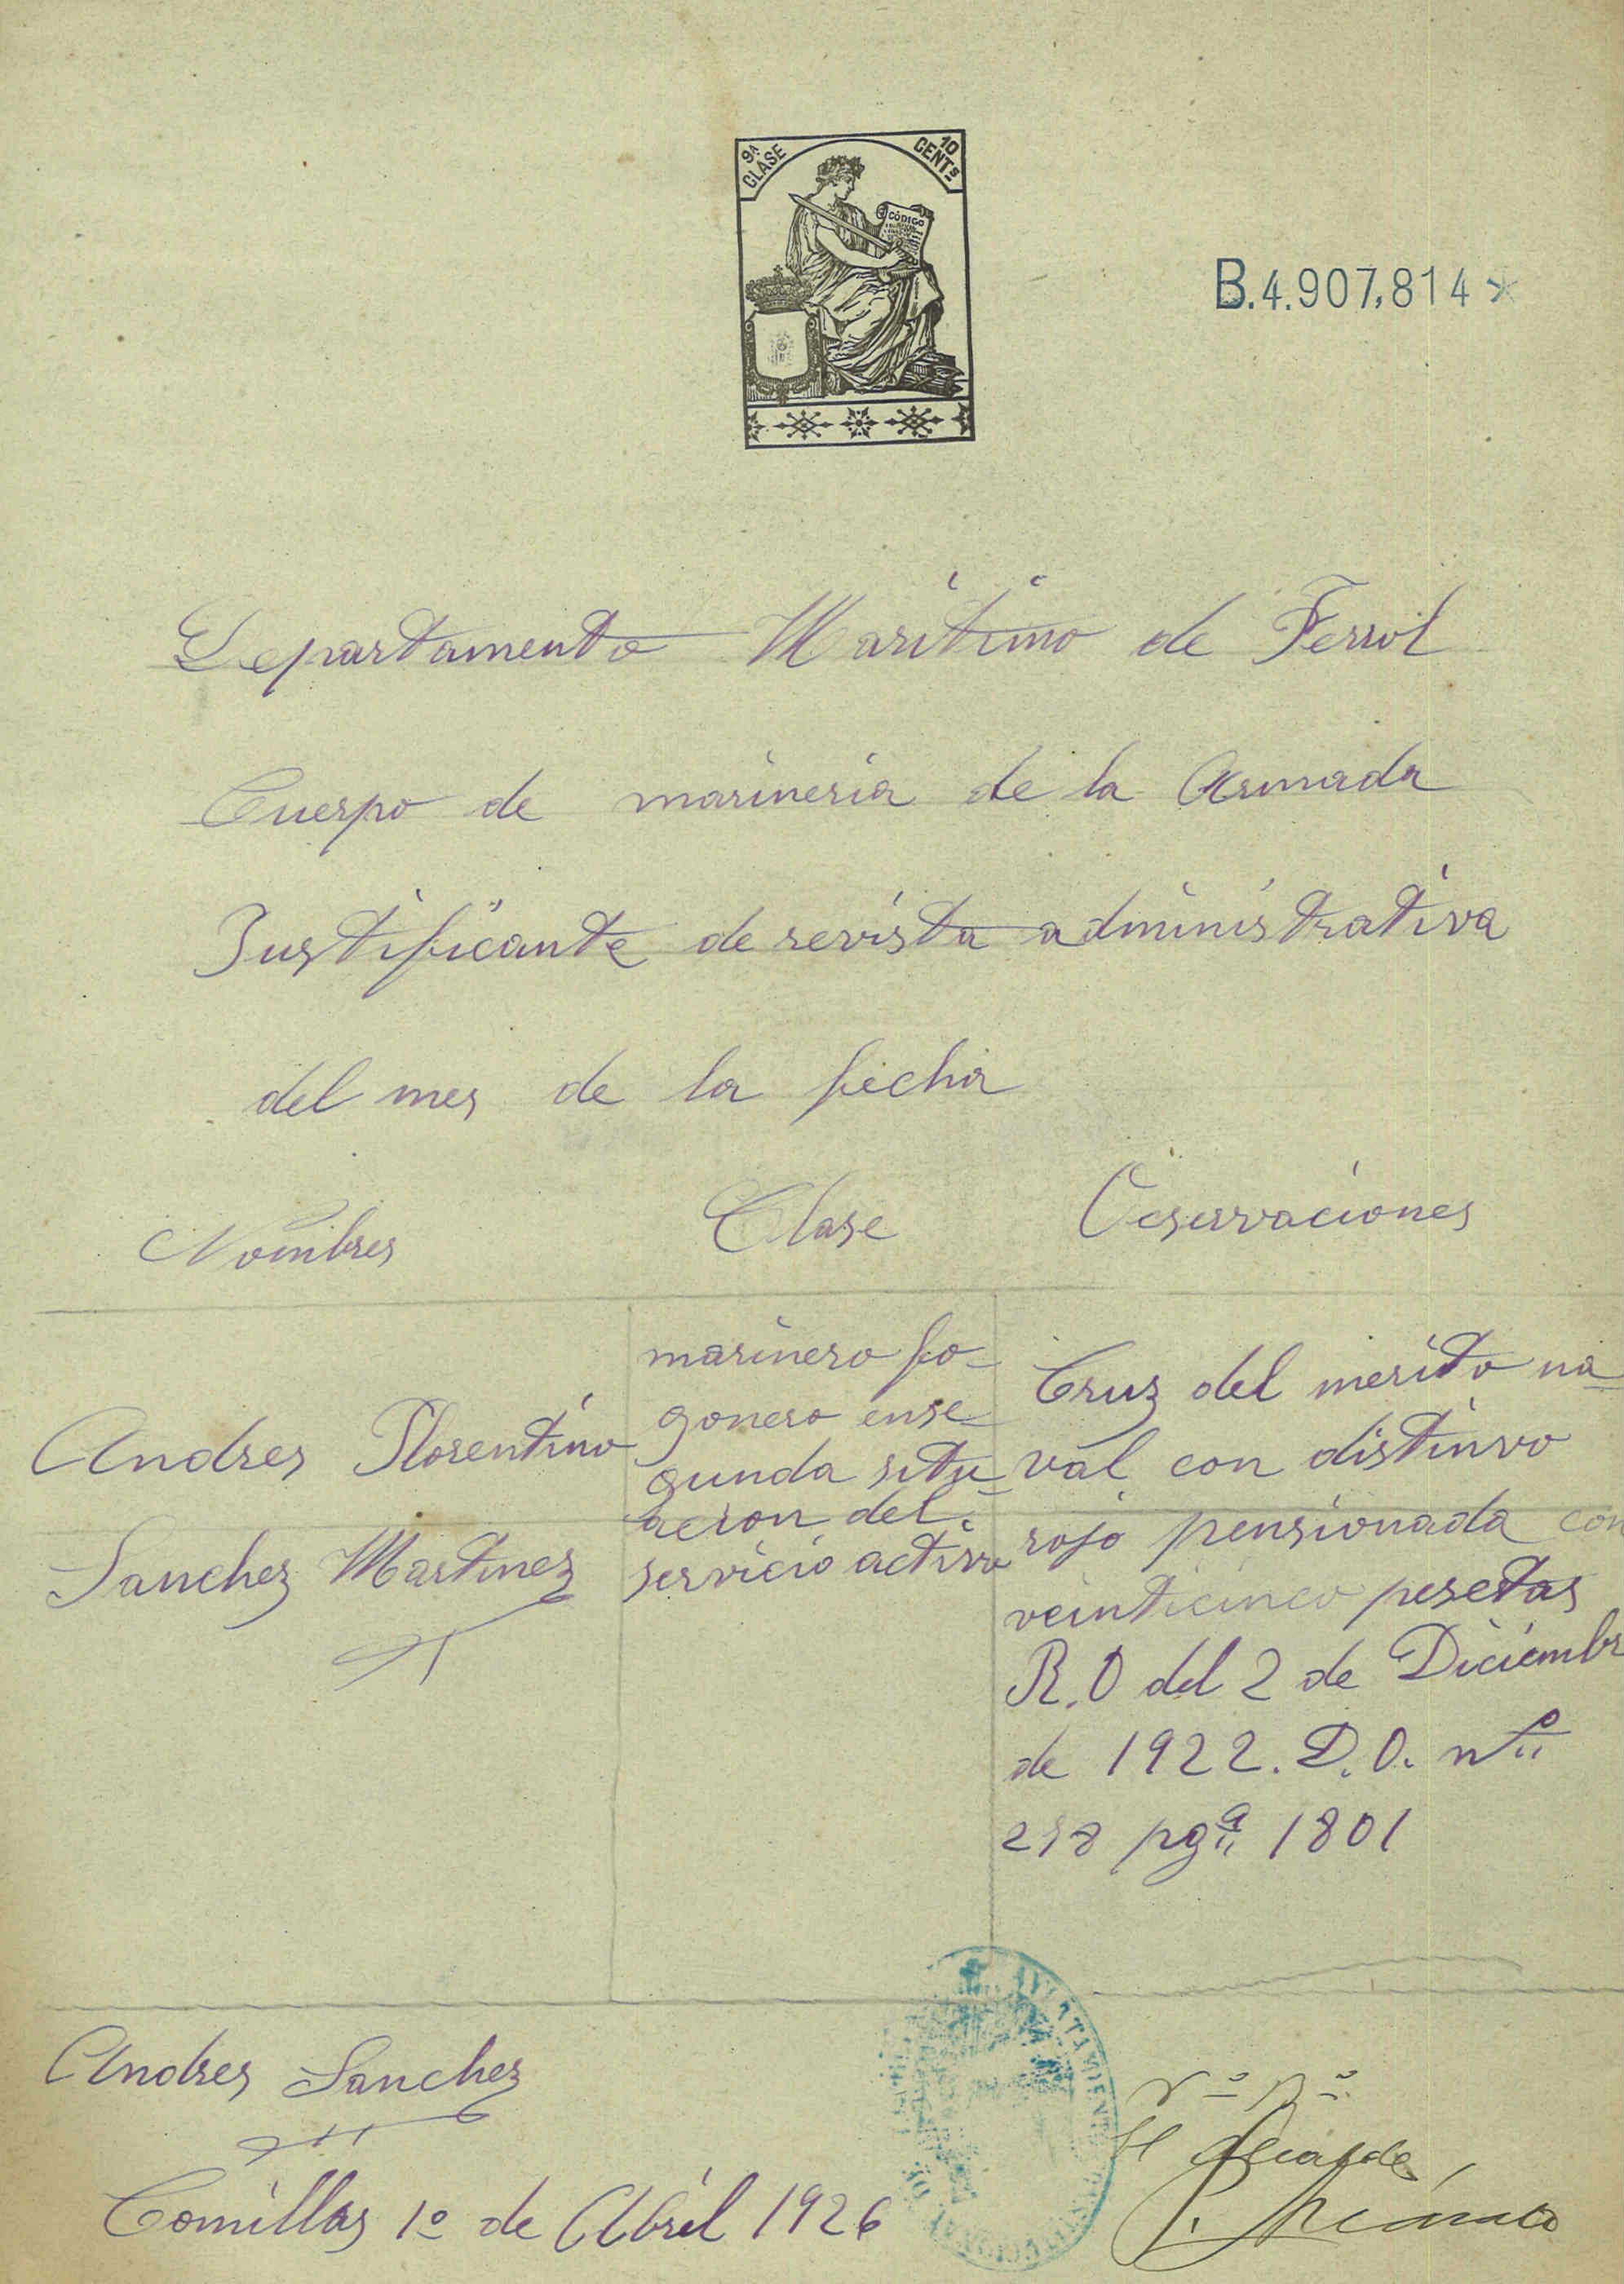 9ª CLASE
10 CENTS
CÓDIGO
B.4.907,814*
Departamento Maritimo de Ferrol
Cuerpo de marineria de la Armada
Justificante de revista administrativa
del mes de la fecha
Nombres Clase Oeservaciones
Andres Florentino
Sanchez Martinez
marinero fo-
gonero en se-
gunda situ-
acion del
servicio activo
Cruz del merito na-
val con distinvo
rojo pensionada con
veinticinco pesetas
R.O del 2 de Diciembr
de 1922. D.O. nº
278 pgª 1801
Andres Sanchez
Comillas 1º de Abril 1926
AYUNTAMIENTO CONSTITUCIONAL DE
Vº Bº
El Alcalde